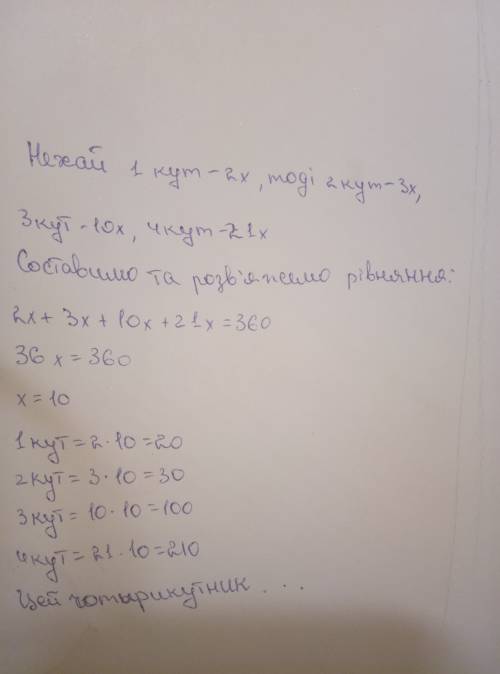 Нехай 1 кут - 2x, тоді 2 кут - 3x,
3 кут - 10x, 4 кут - 21x
Составимо та розв'яжемо рівняння:
2x + 3x + 10x + 21x = 360
36x = 360
x = 10
1 кут = 2 · 10 = 20
2 кут = 3 · 10 = 30
3 кут = 10 · 10 = 100
4 кут = 21 · 10 = 210
Цей чотирикутник . . .